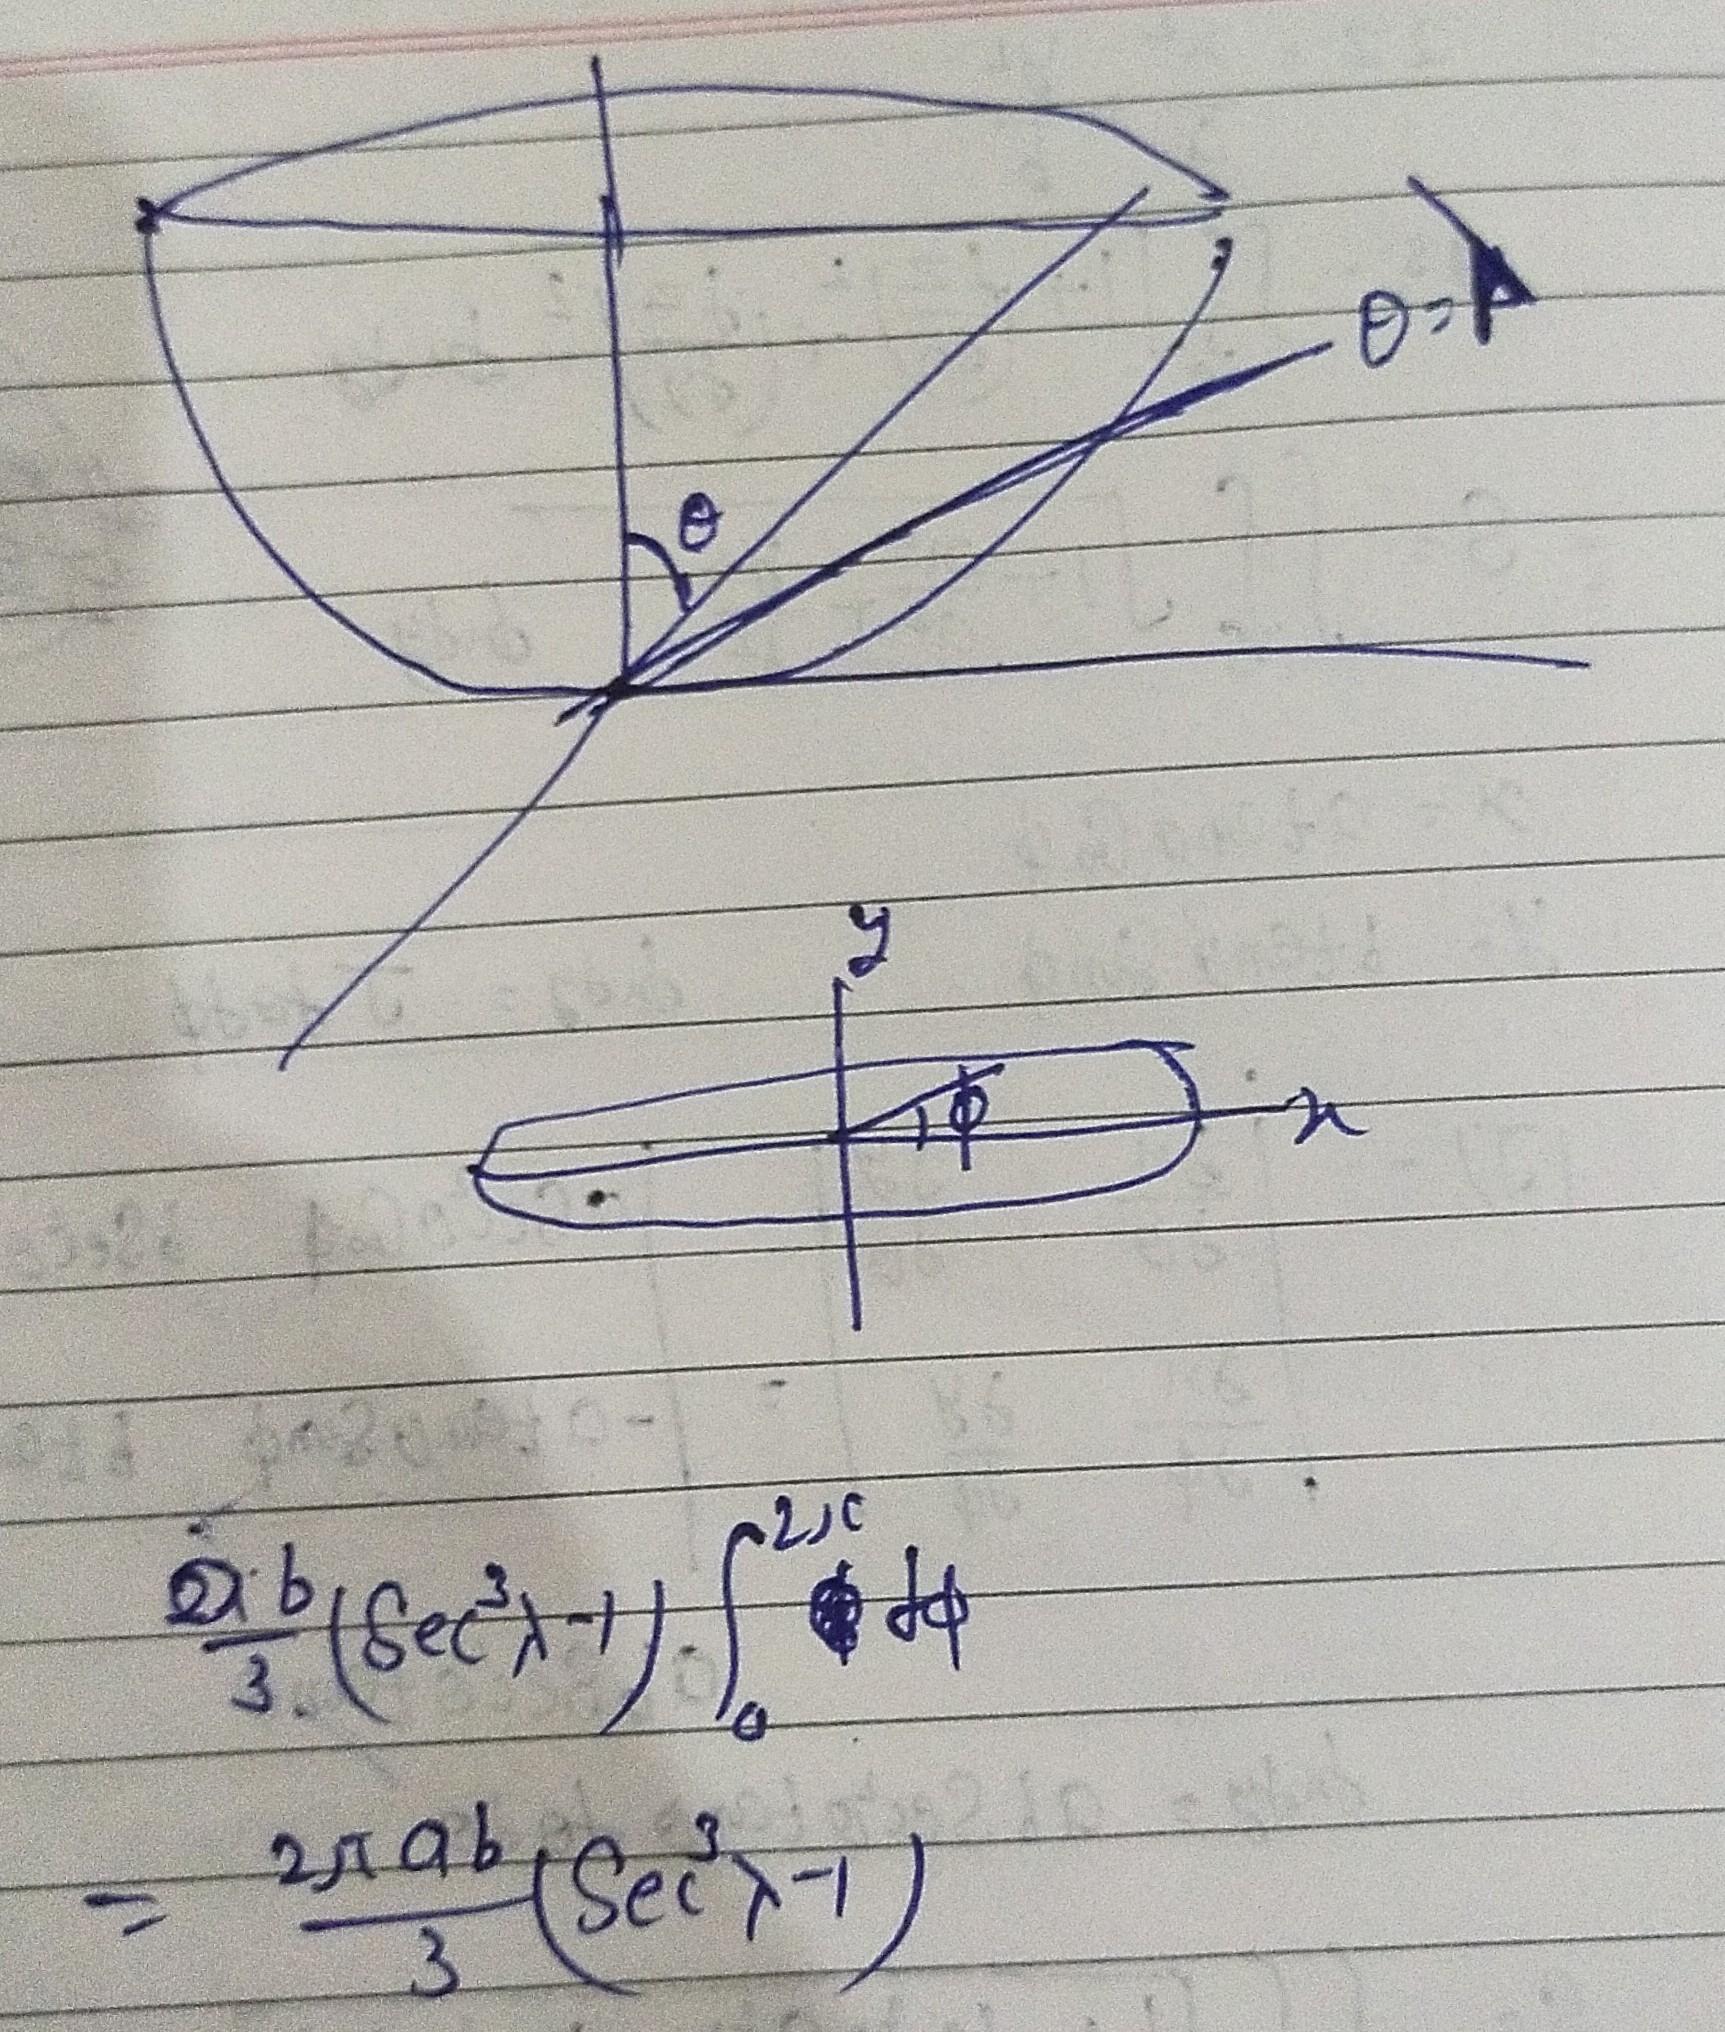 θ = λ
θ
y
ϕ
x
ab/3 (Sec³λ-1) ∫₀^2π dϕ
= 2π ab/3 (Sec³λ-1)